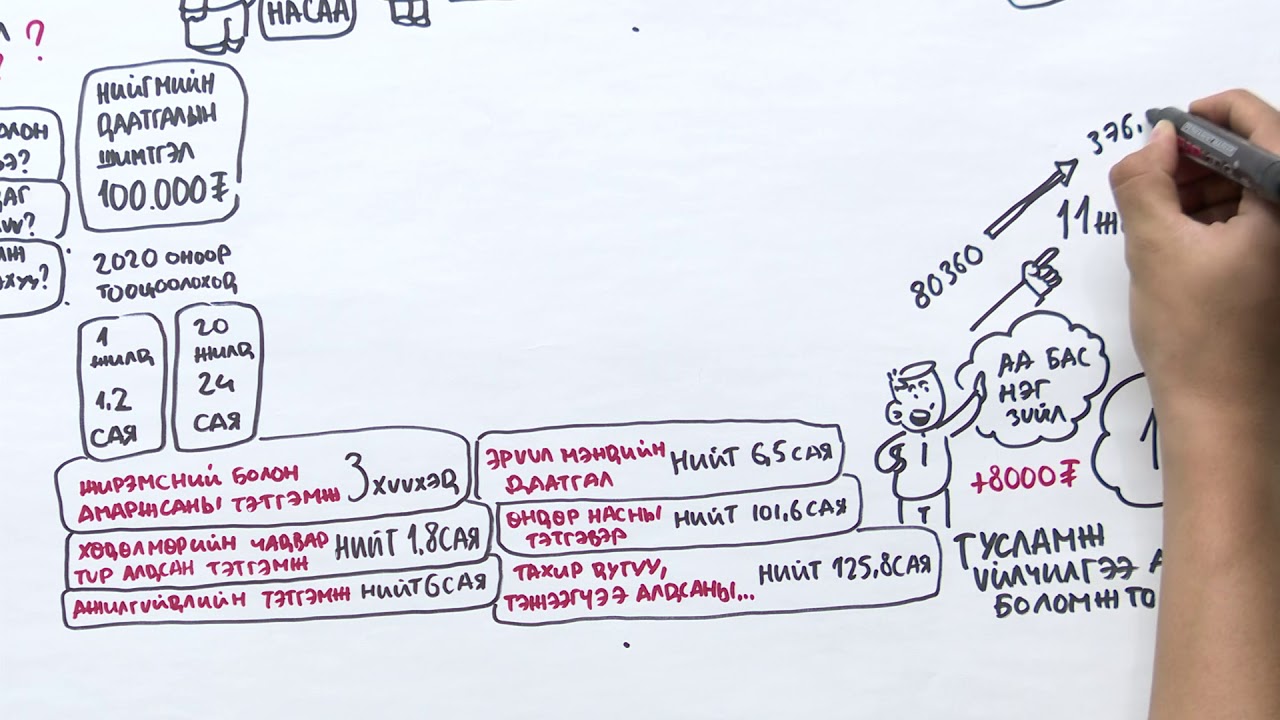 НАСАА
?
?
НИЙГМИЙН
ДААТГАЛЫН
ШИМТГЭЛ
100.000₮
2020 ОНООР
ТООЦООЛОХОД
1
ЖИЛД
1,2
САЯ
20
ЖИЛД
24
САЯ
ЖИРЭМСНИЙ БОЛОН
АМАРЖСАНЫ ТЭТГЭМЖ
3 ХҮҮХЭД
ХӨДӨЛМӨРИЙН ЧАДВАР
ТҮР АЛДСАН ТЭТГЭМЖ
НИЙТ 1,8 САЯ
АЖИЛГҮЙДЛИЙН ТЭТГЭМЖ НИЙТ 6 САЯ
ЭРҮҮЛ МЭНДИЙН
ДААТГАЛ
НИЙТ 6,5 САЯ
ӨНДӨР НАСНЫ
ТЭТГЭВЭР
НИЙТ 101,6 САЯ
ТАХИР ДУТУУ,
ТЭЖЭЭГЧЭЭ АЛДСАНЫ...
НИЙТ 125,8 САЯ
80360
376.
11
АА БАС
НЭГ
ЗҮЙЛ
+8000₮
ТУСЛАМЖ
ҮЙЛЧИЛГЭЭ